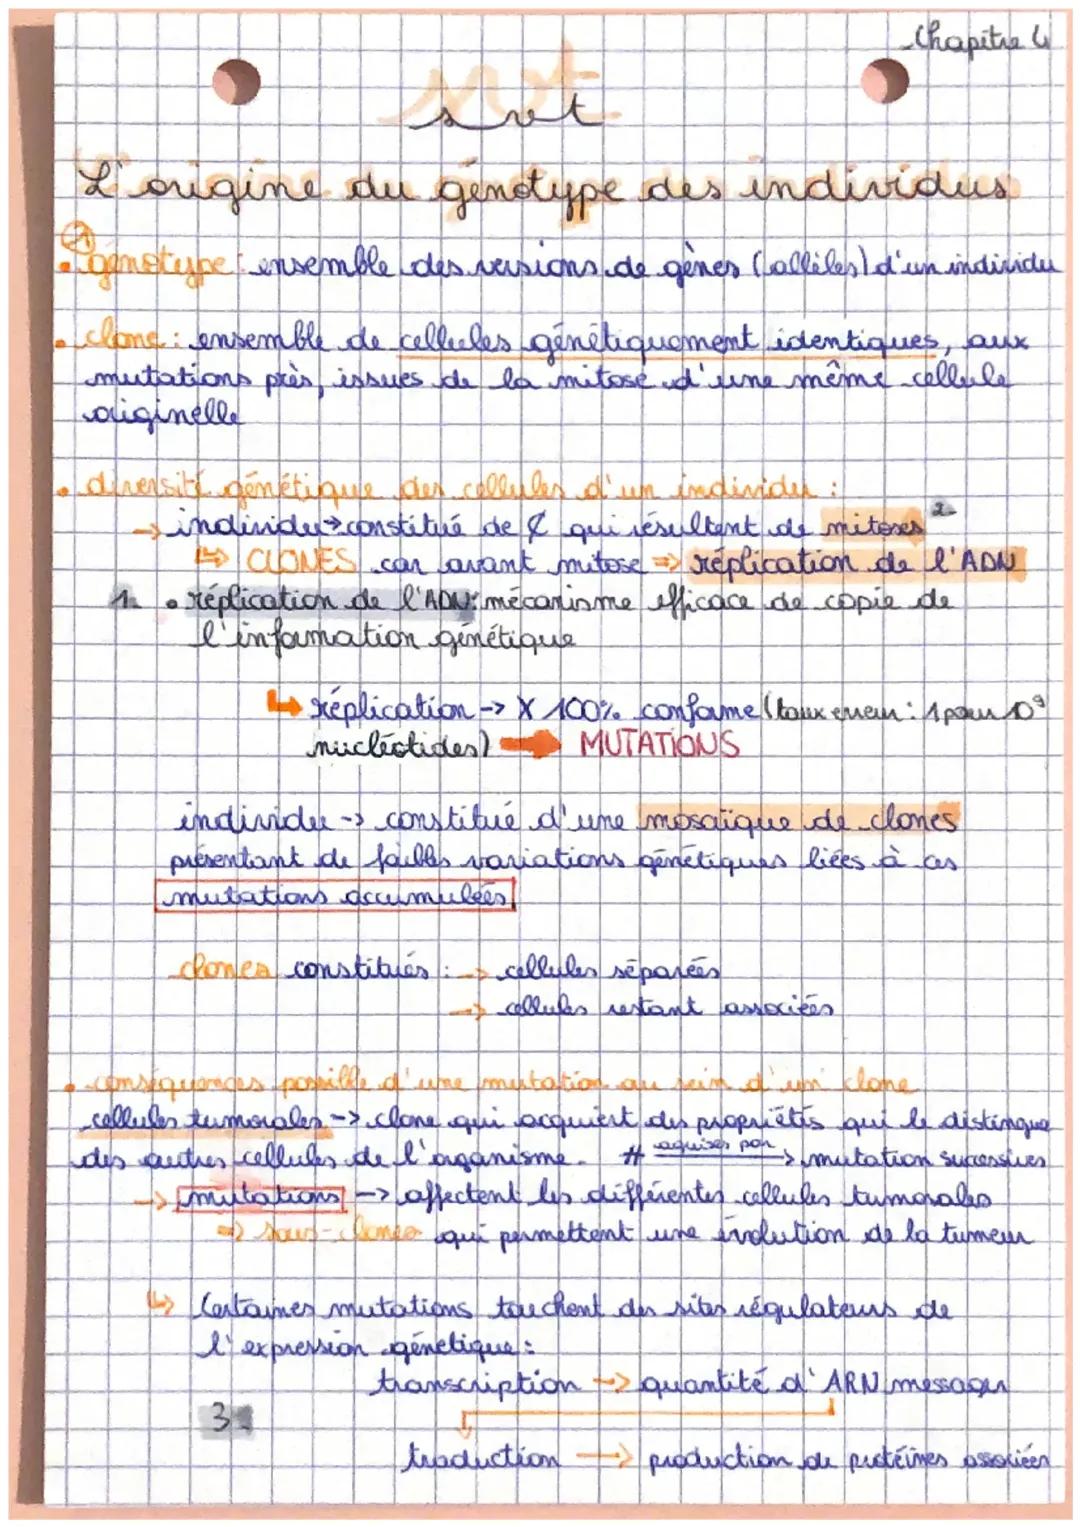 Chapitre 4
svt
L'origine du génotype des individus
1
• génotype : ensemble des versions de gènes (allèles) d'un individu
• clone : ensemble de cellules génétiquement identiques, aux
mutations près, issues de la mitose d'une même cellule
originelle
• diversité génétique des cellules d'un individu :
→ individu → constitué de ₵ qui résultent de mitoses 2.
↳ CLONES car avant mitose ⇒ réplication de l'ADN
1. • réplication de l'ADN : mécanisme efficace de copie de
l'information génétique
↳ réplication -> X 100% conforme (taux erreur : 1 pour 10⁹
nucléotides) → MUTATIONS
individu -> constitué d'une mosaïque de clones
présentant de faibles variations génétiques liées à ces
mutations accumulées
clones constitués : → cellules séparées
→ cellules restant associées
• conséquences possible d'une mutation au sein d'un clone
cellules tumorales -> clone qui acquiert des propriétés qui le distingue
des autres cellules de l'organisme. # aquises par → mutation successives
→ mutations -> affectent les différentes cellules tumorales
⇒ sous-clones qui permettent une évolution de la tumeur
↳ Certaines mutations touchent des sites régulateurs de
l'expression génétique :
transcription → quantité d'ARN messager
3.
traduction → production de protéines associées